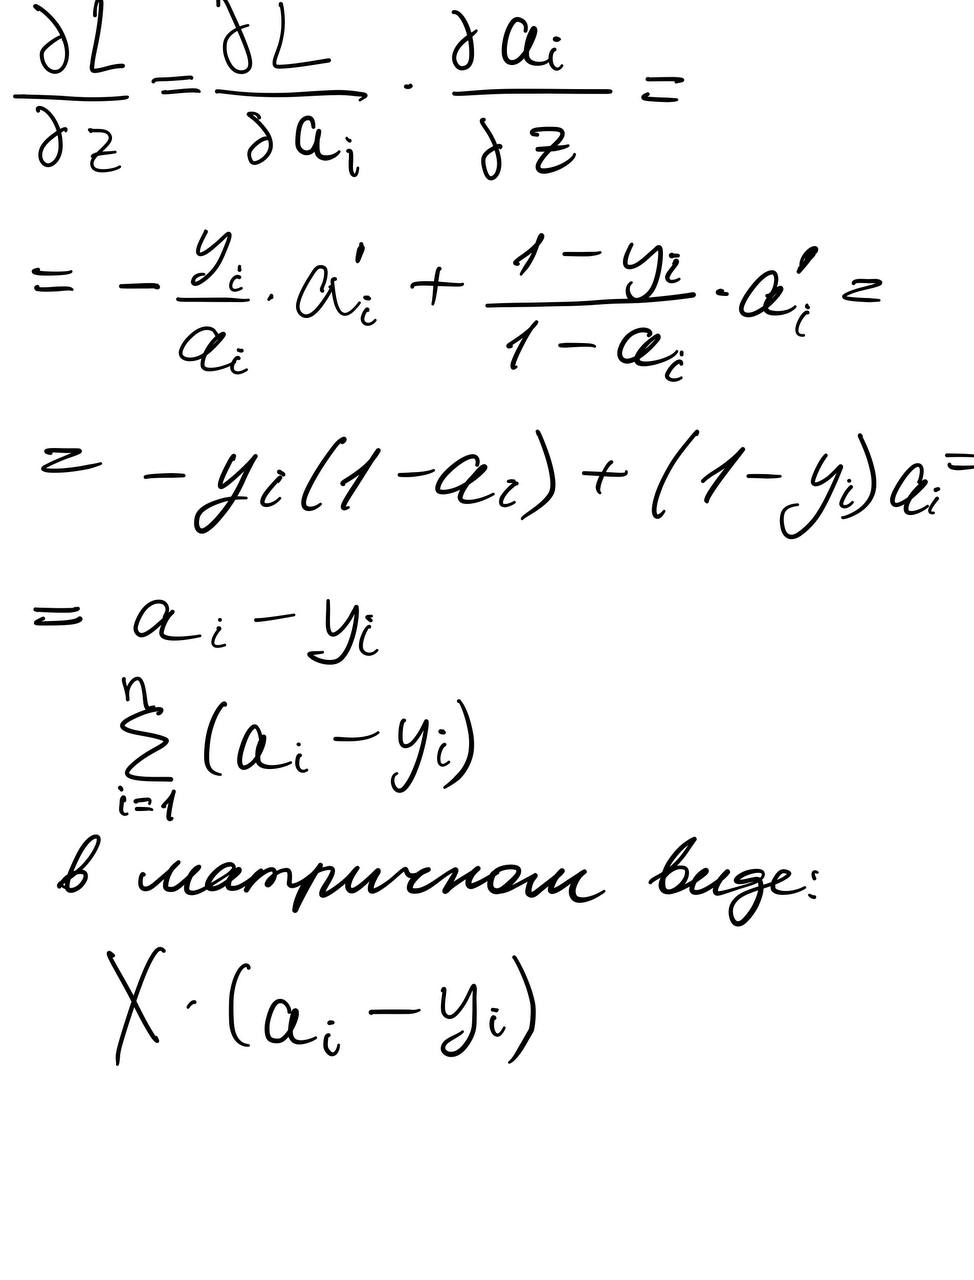 ∂L/∂z = ∂L/∂a_i · ∂a_i/∂z =
= - y_i/a_i · a'_i + (1 - y_i)/(1 - a_i) · a'_i =
= - y_i(1 - a_i) + (1 - y_i)a_i =
= a_i - y_i
∑_{i=1}^{n} (a_i - y_i)
в матричном виде:
X · (a_i - y_i)